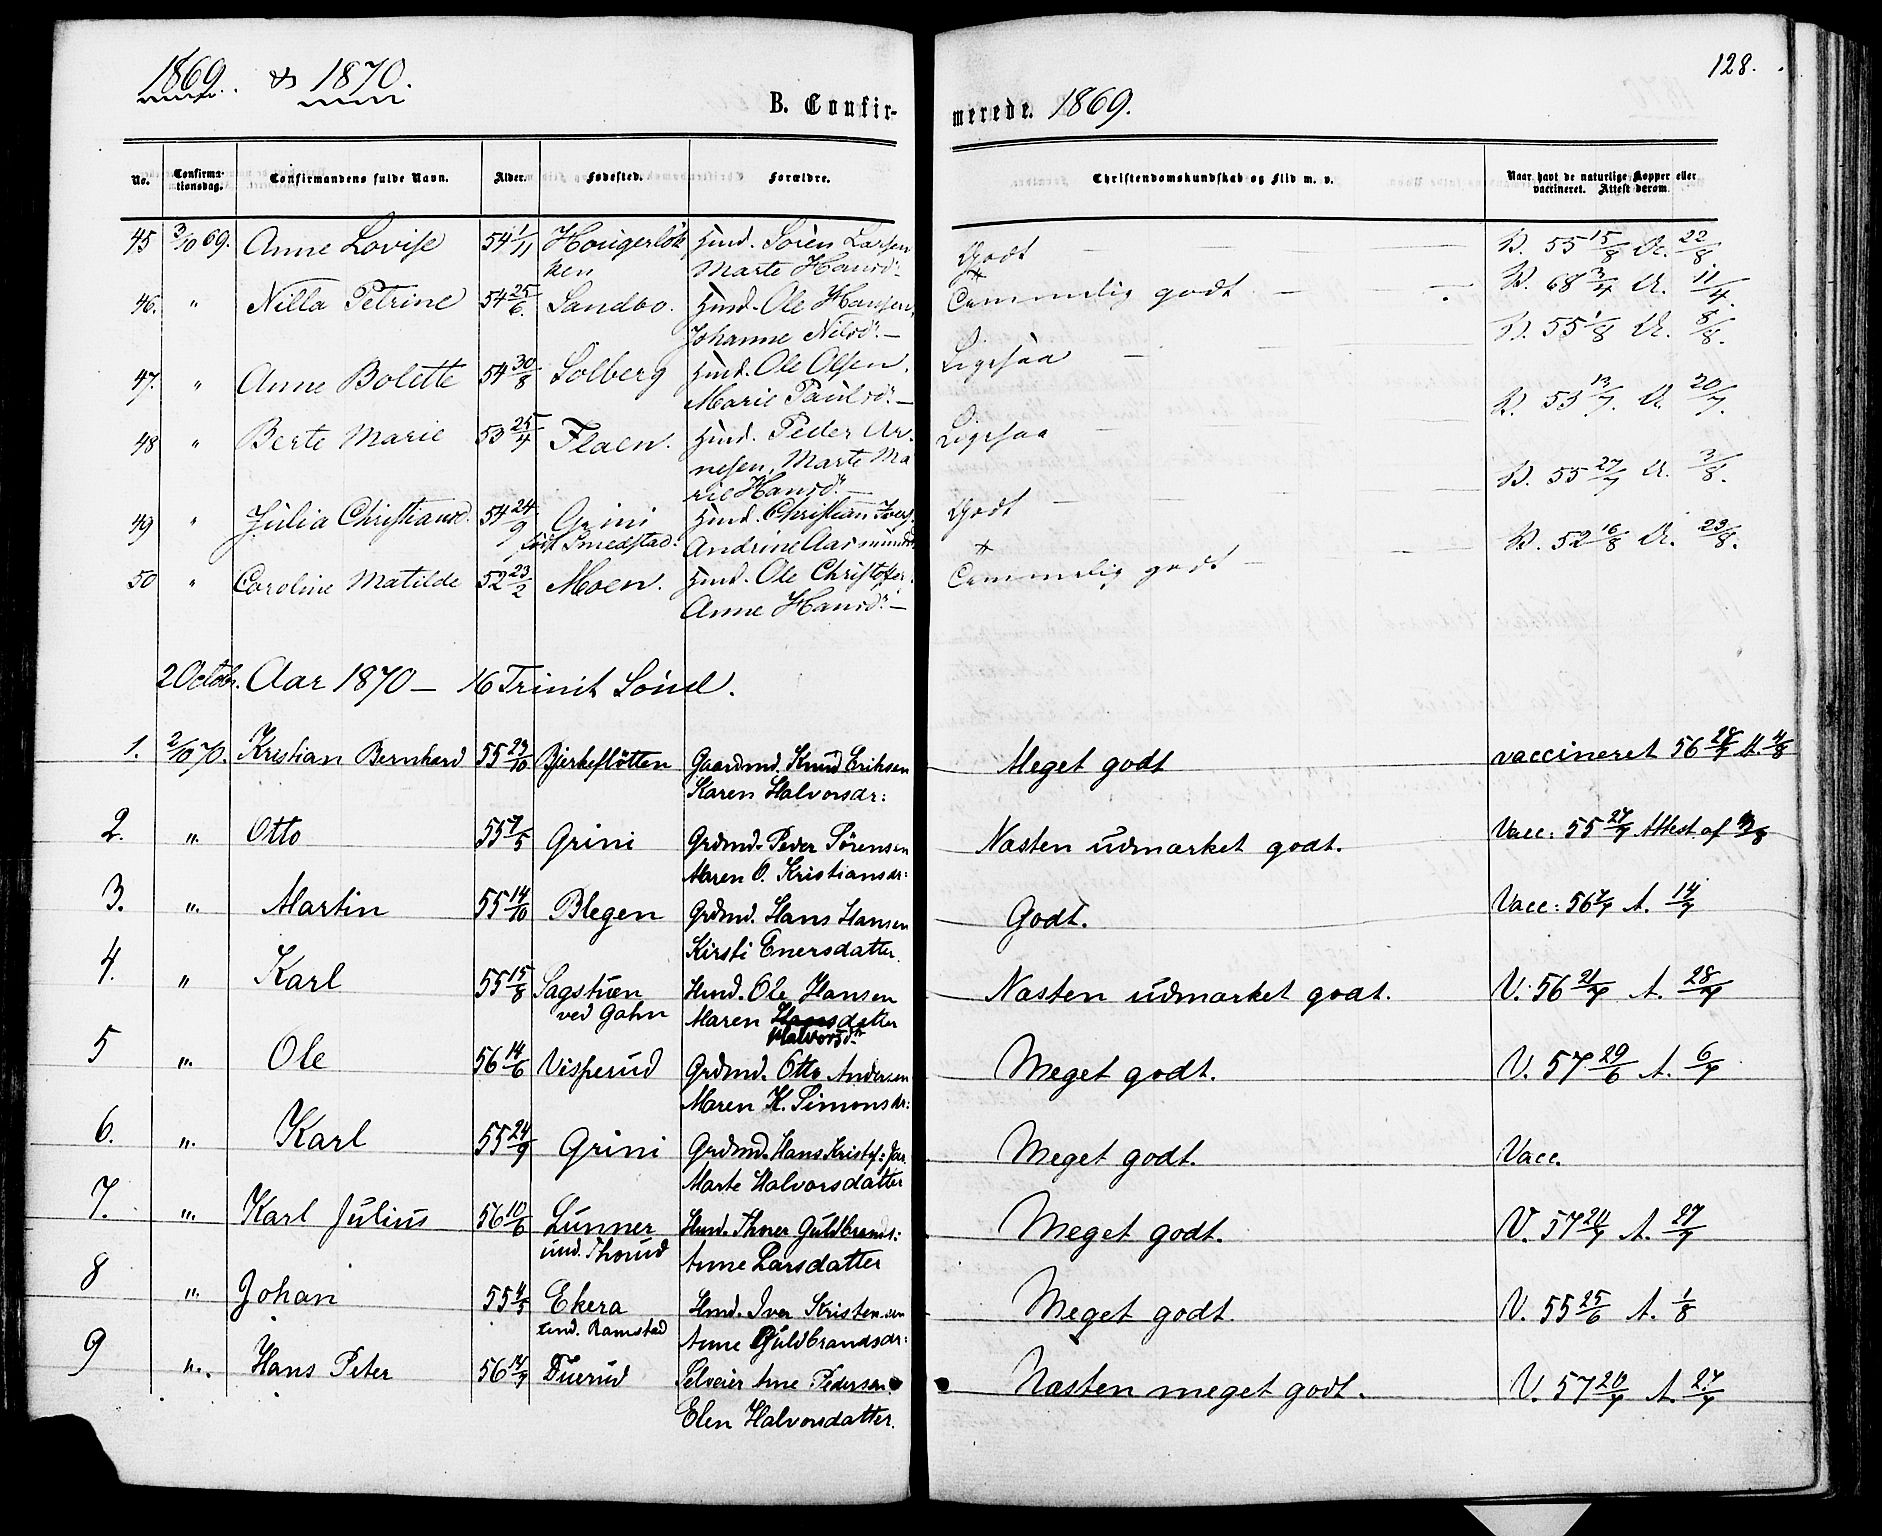 1869. & 1870.
128.
B. Confir- merede. 1869.
No. Confirma-tionsdag. Confirmandens fulde Navn. Alder. Fødested. Forældre. Christendomskundskab og Flid m. v. Naar havt de naturlige Kopper eller vaccineret. Attest derom.
45 3/10 69. Anne Lovise 54 1/11 Hougerløk Husd. Sören Larsen Godt V. 55 15/8 A. 22/8
ken Marte Hansd.
46. " Nilla Petrine 54 25/6 Sandbo. Husd. Ole Hansen Temmelig godt V. 68 3/4 A. 11/4.
Johanne Nilsd. V. 55 1/8 A. 8/8.
47. " Anne Bolette 54 30/8 Solberg Husd. Ole Olsen. Ligesaa
Marie Paulsd. V. 55 13/7. A. 20/7.
48 " Berte Marie 53 25/4 Flaen. Husd. Peder Ar- Ligesaa
nesen, Marte Ma
rie Hansd. V. 55 27/7 A. 3/8.
49 " Julia Christiansd. 54 24/9 Grini Husd. Christian Ivers. Godt
födt Smedstad: Andrine Aasmunds V. 52 16/8 A. 23/8.
50 " Caroline Matilde 52 23/2 Moen. Husd. Ole Christoffer. Temmelig godt
Anne Hansd.
2 Octob. Aar 1870 — 16 Trinit Sönd.
1. 2/10 70. Kristian Bernhard 55 23/10 Bjerkeflötten Gaardmd. Knud Eriksen Meget godt vaccineret 56 28/7 A. 4/8
Karen Halvorsdr:
2. " Otto 55 7/5 Grini Grdmd. Peder Sørensen Næsten udmærket godt. Vacc: 55 27/7 Attest af 3/8
Maren O. Kristiansdr:
3. " Martin 55 14/10 Blegen Grdmd. Hans Hansen Godt. Vacc: 56 7/7 A. 14/7
Kirsti Enersdatter.
4. " Karl 55 15/8 Sagstuen Husd. Ole Hansen Næsten udmærket godt. V. 56 21/7 A. 28/7
ved Gahn Maren Hansdatter
Halvorsd.
5 " Ole 56 14/6 Visperud Grdmd. Otto Andersen Meget godt. V. 57 29/6 A. 6/7
Maren K. Simonsdr:
6. " Karl 55 24/9 Grini Grdmd. Hans Kristof: Meget godt. Vacc.
Marte Halvorsdatter
7. " Karl Julius 56 10/6 Lunner Husd. Thorer Guldbrands: Meget godt. V. 57 20/7 A. 27/7
und. Thorud Anne Larsdatter
8 " Johan 55 4/5 Ekera Husd. Iver Kristensen Meget godt. V. 55 25/6 A. 1/8
und. Ramstad Anne Guldbrandsdr:
9 " Hans Peter 56 14/7 Duerud Selveier Arne Pedersen Næsten meget godt. V. 57 20/7 A. 27/7
Elen Halvorsdatter.